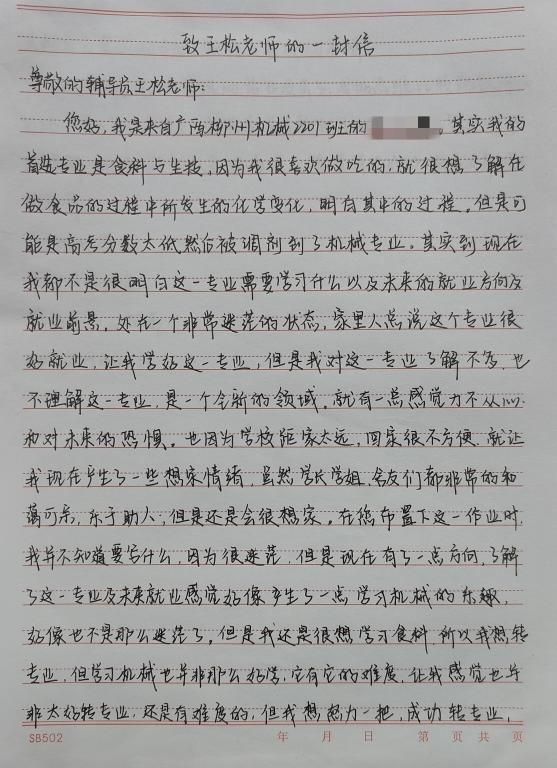 致王松老师的一封信
尊敬的辅导员王松老师:
您好,我是来自广西柳州机械2201班的。其实我的
首选专业是食科与生技,因为我很喜欢做吃的,就很想了解在
做食品的过程中所发生的化学变化,明白其中的过程。但是可
能是高考分数太低然后被调剂到了机械专业。其实到现在
我都不是很明白这一专业需要学习什么以及未来的就业方向及
就业前景。处在一个非常迷茫的状态,家里人总说这个专业很
好就业,让我学好这一专业,但是我对这一专业了解不多,也
不理解这一专业,是一个全新的领域。就有一点感觉力不从心
和对未来的恐惧。也因为学校距家太远,回家很不方便,就让
我现在产生了一些想家情绪,虽然学长学姐,舍友们都非常的和
蔼可亲,乐于助人,但是还是会很想家。在您布置下这一作业时,
我并不知道要写什么,因为很迷茫,但是现在有了一点方向,了解
了这一专业及未来就业感觉好像产生了一点学习机械的乐趣,
好像也不是那么迷茫了。但是我还是很想学习食科,所以我想转
专业,但学习机械也并非那么好学,它有它的难度,让我感觉也并
非太好转专业,还是有难度的,但我想努力一把,成功转专业,
SB502 年 月 日 第 页 共 页